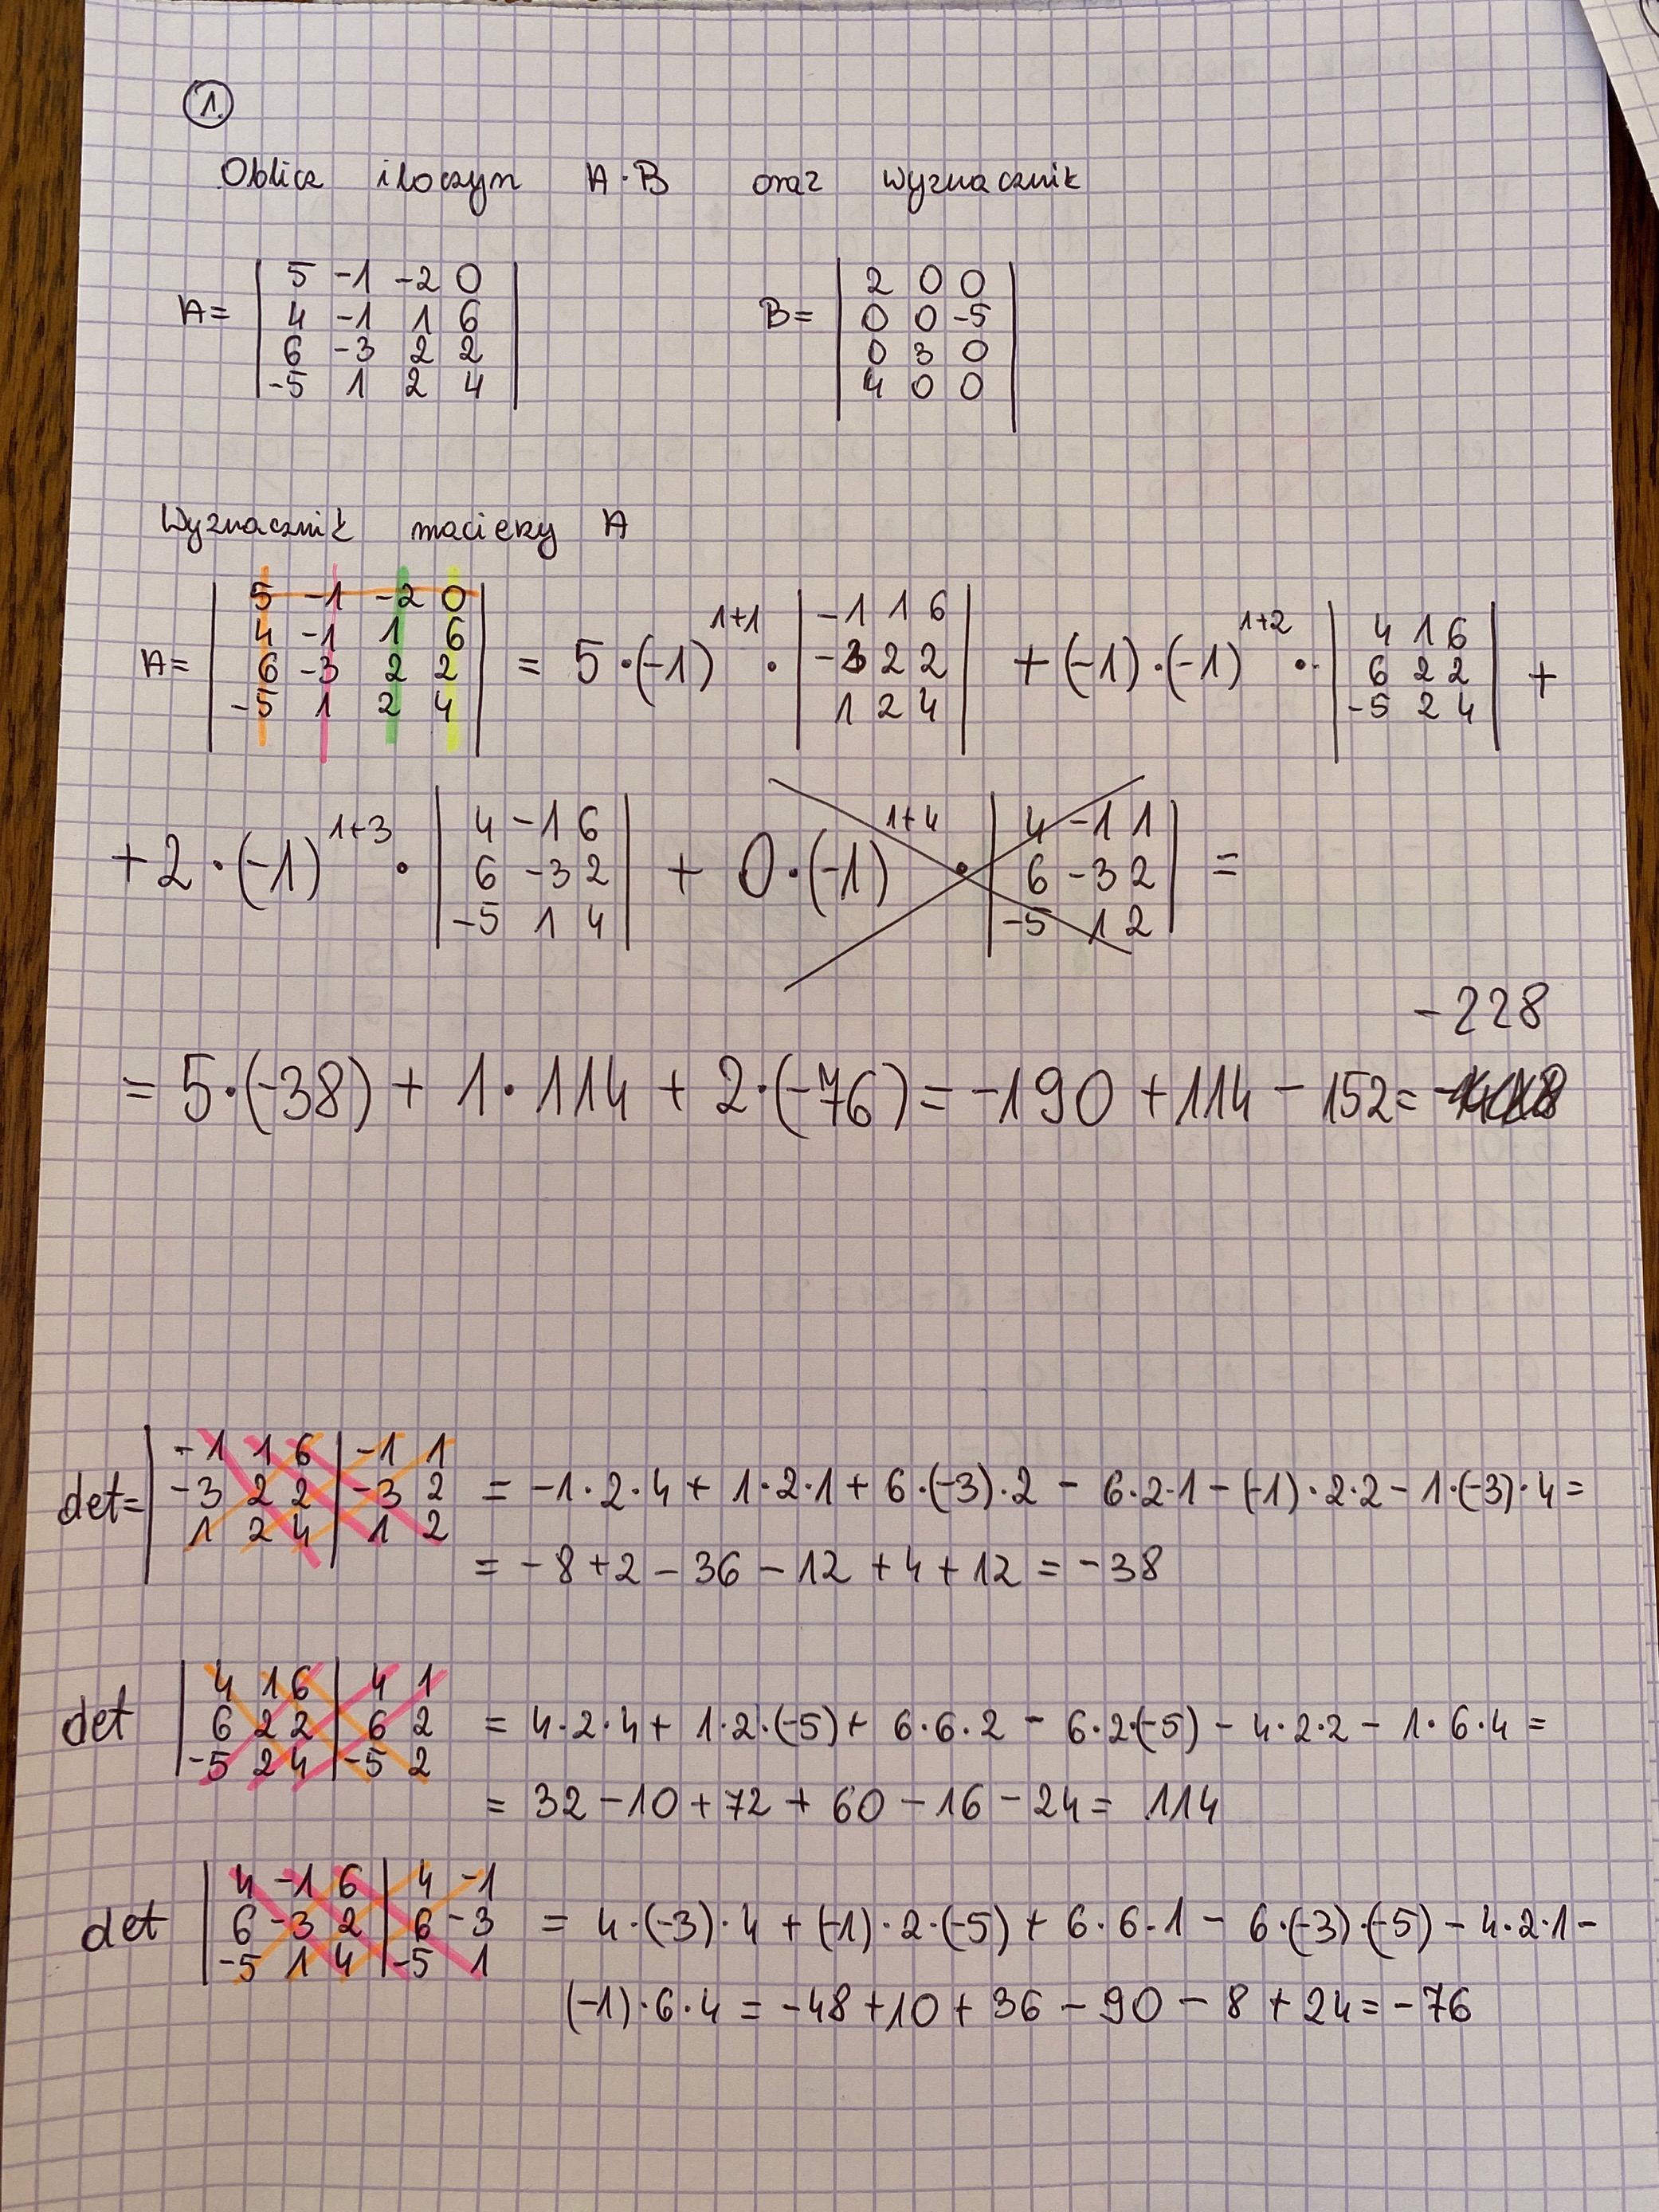 1.
Oblicz iloczyn A·B oraz wyznacznik
A= | 5 -1 -2 0 |
| 4 -1 1 6 |
| 6 -3 2 2 |
| -5 1 2 4 |
B= | 2 0 0 |
| 0 0 -5 |
| 0 3 0 |
| 4 0 0 |
Wyznacznik macierzy A
A= | 5 -1 -2 0 |
| 4 -1 1 6 |
| 6 -3 2 2 |
| -5 1 2 4 |
= 5·(-1)^1+1 · | -1 1 6 |
| -3 2 2 |
| 1 2 4 |
+(-1)·(-1)^1+2 · | 4 1 6 |
| 6 2 2 |
| -5 2 4 | +
+2·(-1)^1+3 · | 4 -1 6 |
| 6 -3 2 |
| -5 1 4 |
+ 0·(-1)^1+4 · | 4 -1 1 |
| 6 -3 2 |
| -5 1 2 | =
= 5·(-38) + 1·114 + 2·(-76) = -190 + 114 - 152 = -228
det= | -1 1 6 | -1 1
| -3 2 2 | -3 2
| 1 2 4 | 1 2
= -1·2·4 + 1·2·1 + 6·(-3)·2 - 6·2·1 - (-1)·2·2 - 1·(-3)·4 =
= -8 + 2 - 36 - 12 + 4 + 12 = -38
det | 4 1 6 | 4 1
| 6 2 2 | 6 2
| -5 2 4 | -5 2
= 4·2·4 + 1·2·(-5) + 6·6·2 - 6·2·(-5) - 4·2·2 - 1·6·4 =
= 32 - 10 + 72 + 60 - 16 - 24 = 114
det | 4 -1 6 | 4 -1
| 6 -3 2 | 6 -3
| -5 1 4 | -5 1
= 4·(-3)·4 + (-1)·2·(-5) + 6·6·1 - 6·(-3)·(-5) - 4·2·1 -
(-1)·6·4 = -48 + 10 + 36 - 90 - 8 + 24 = -76